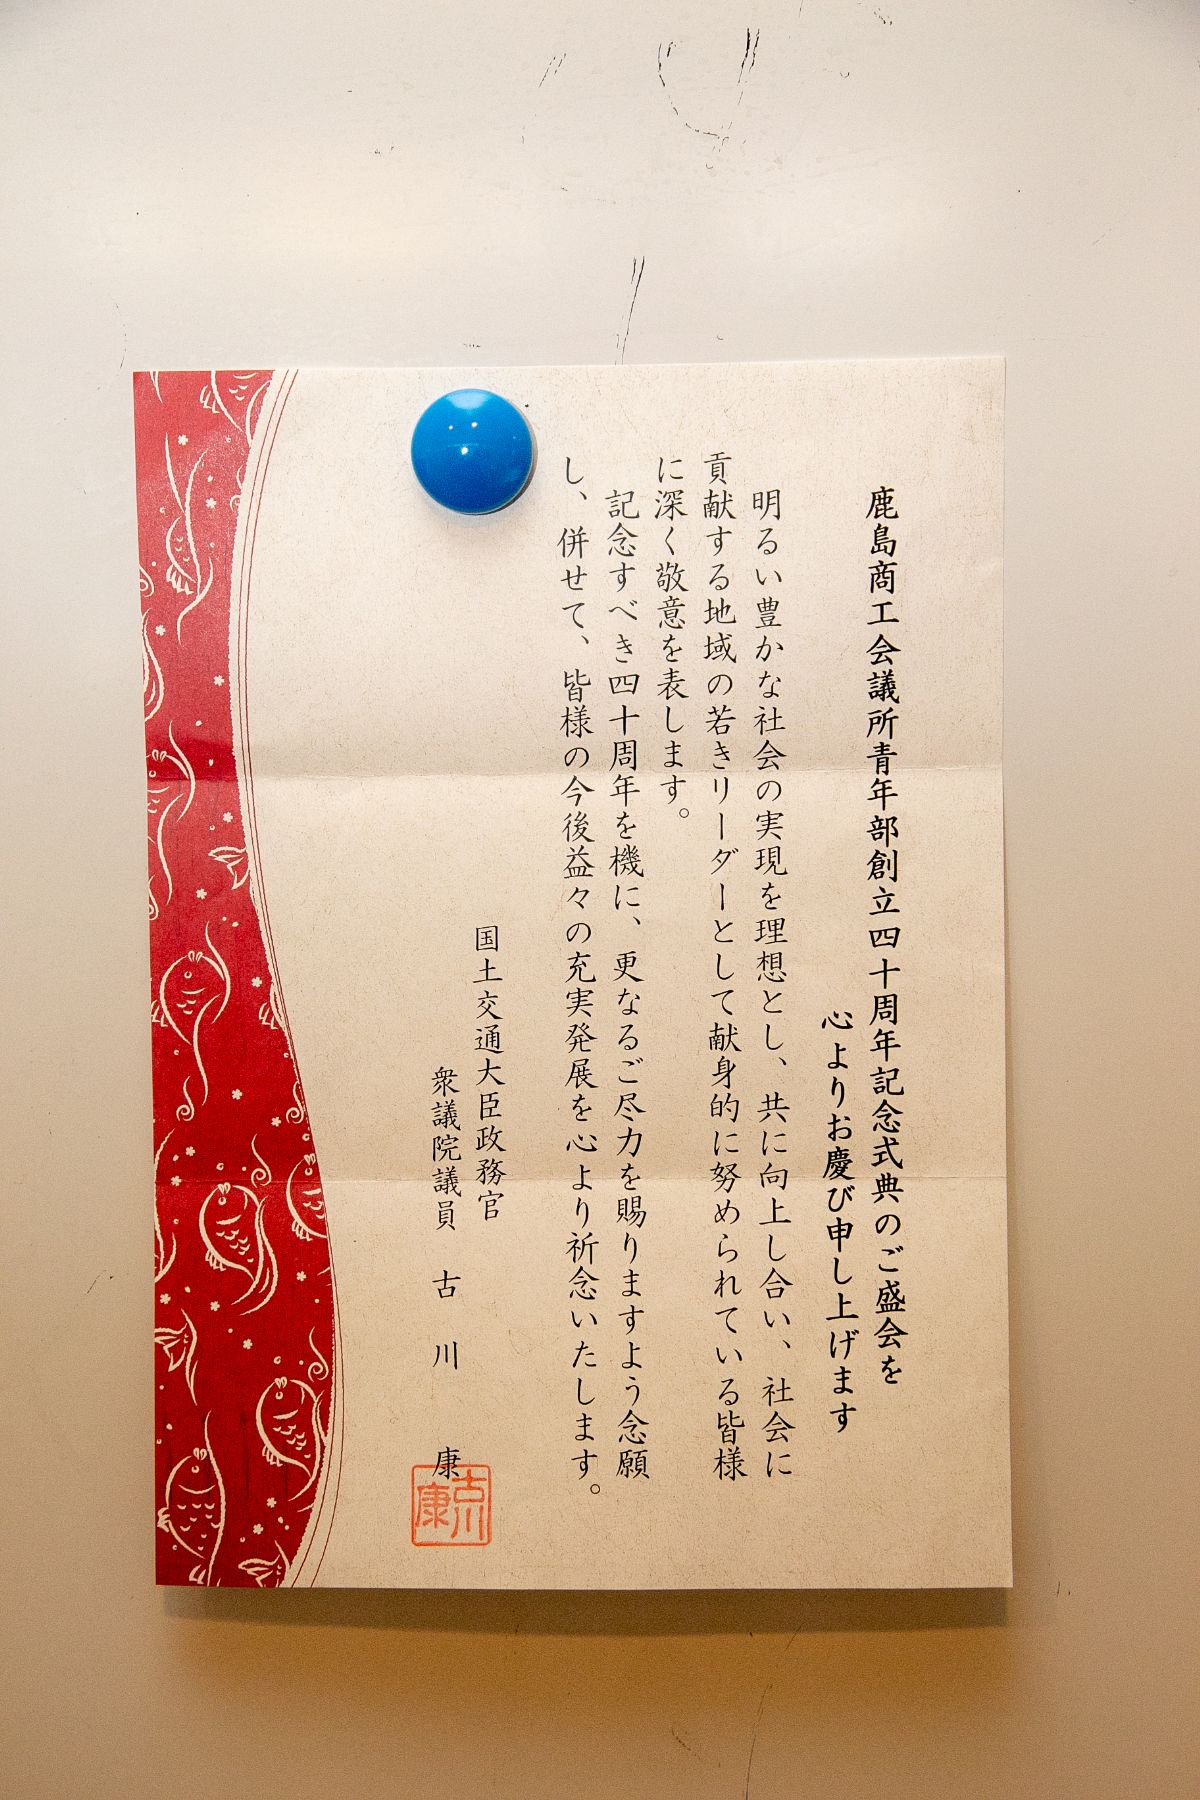 鹿島商工会議所青年部創立四十周年記念式典のご盛会を
心よりお慶び申し上げます
明るい豊かな社会の実現を理想とし、共に向上し合い、社会に
貢献する地域の若きリーダーとして献身的に努められている皆様
に深く敬意を表します。
記念すべき四十周年を機に、更なるご尽力を賜りますよう念願
し、併せて、皆様の今後益々の充実発展を心より祈念いたします。
国土交通大臣政務官
衆議院議員 古川 康
古川
康